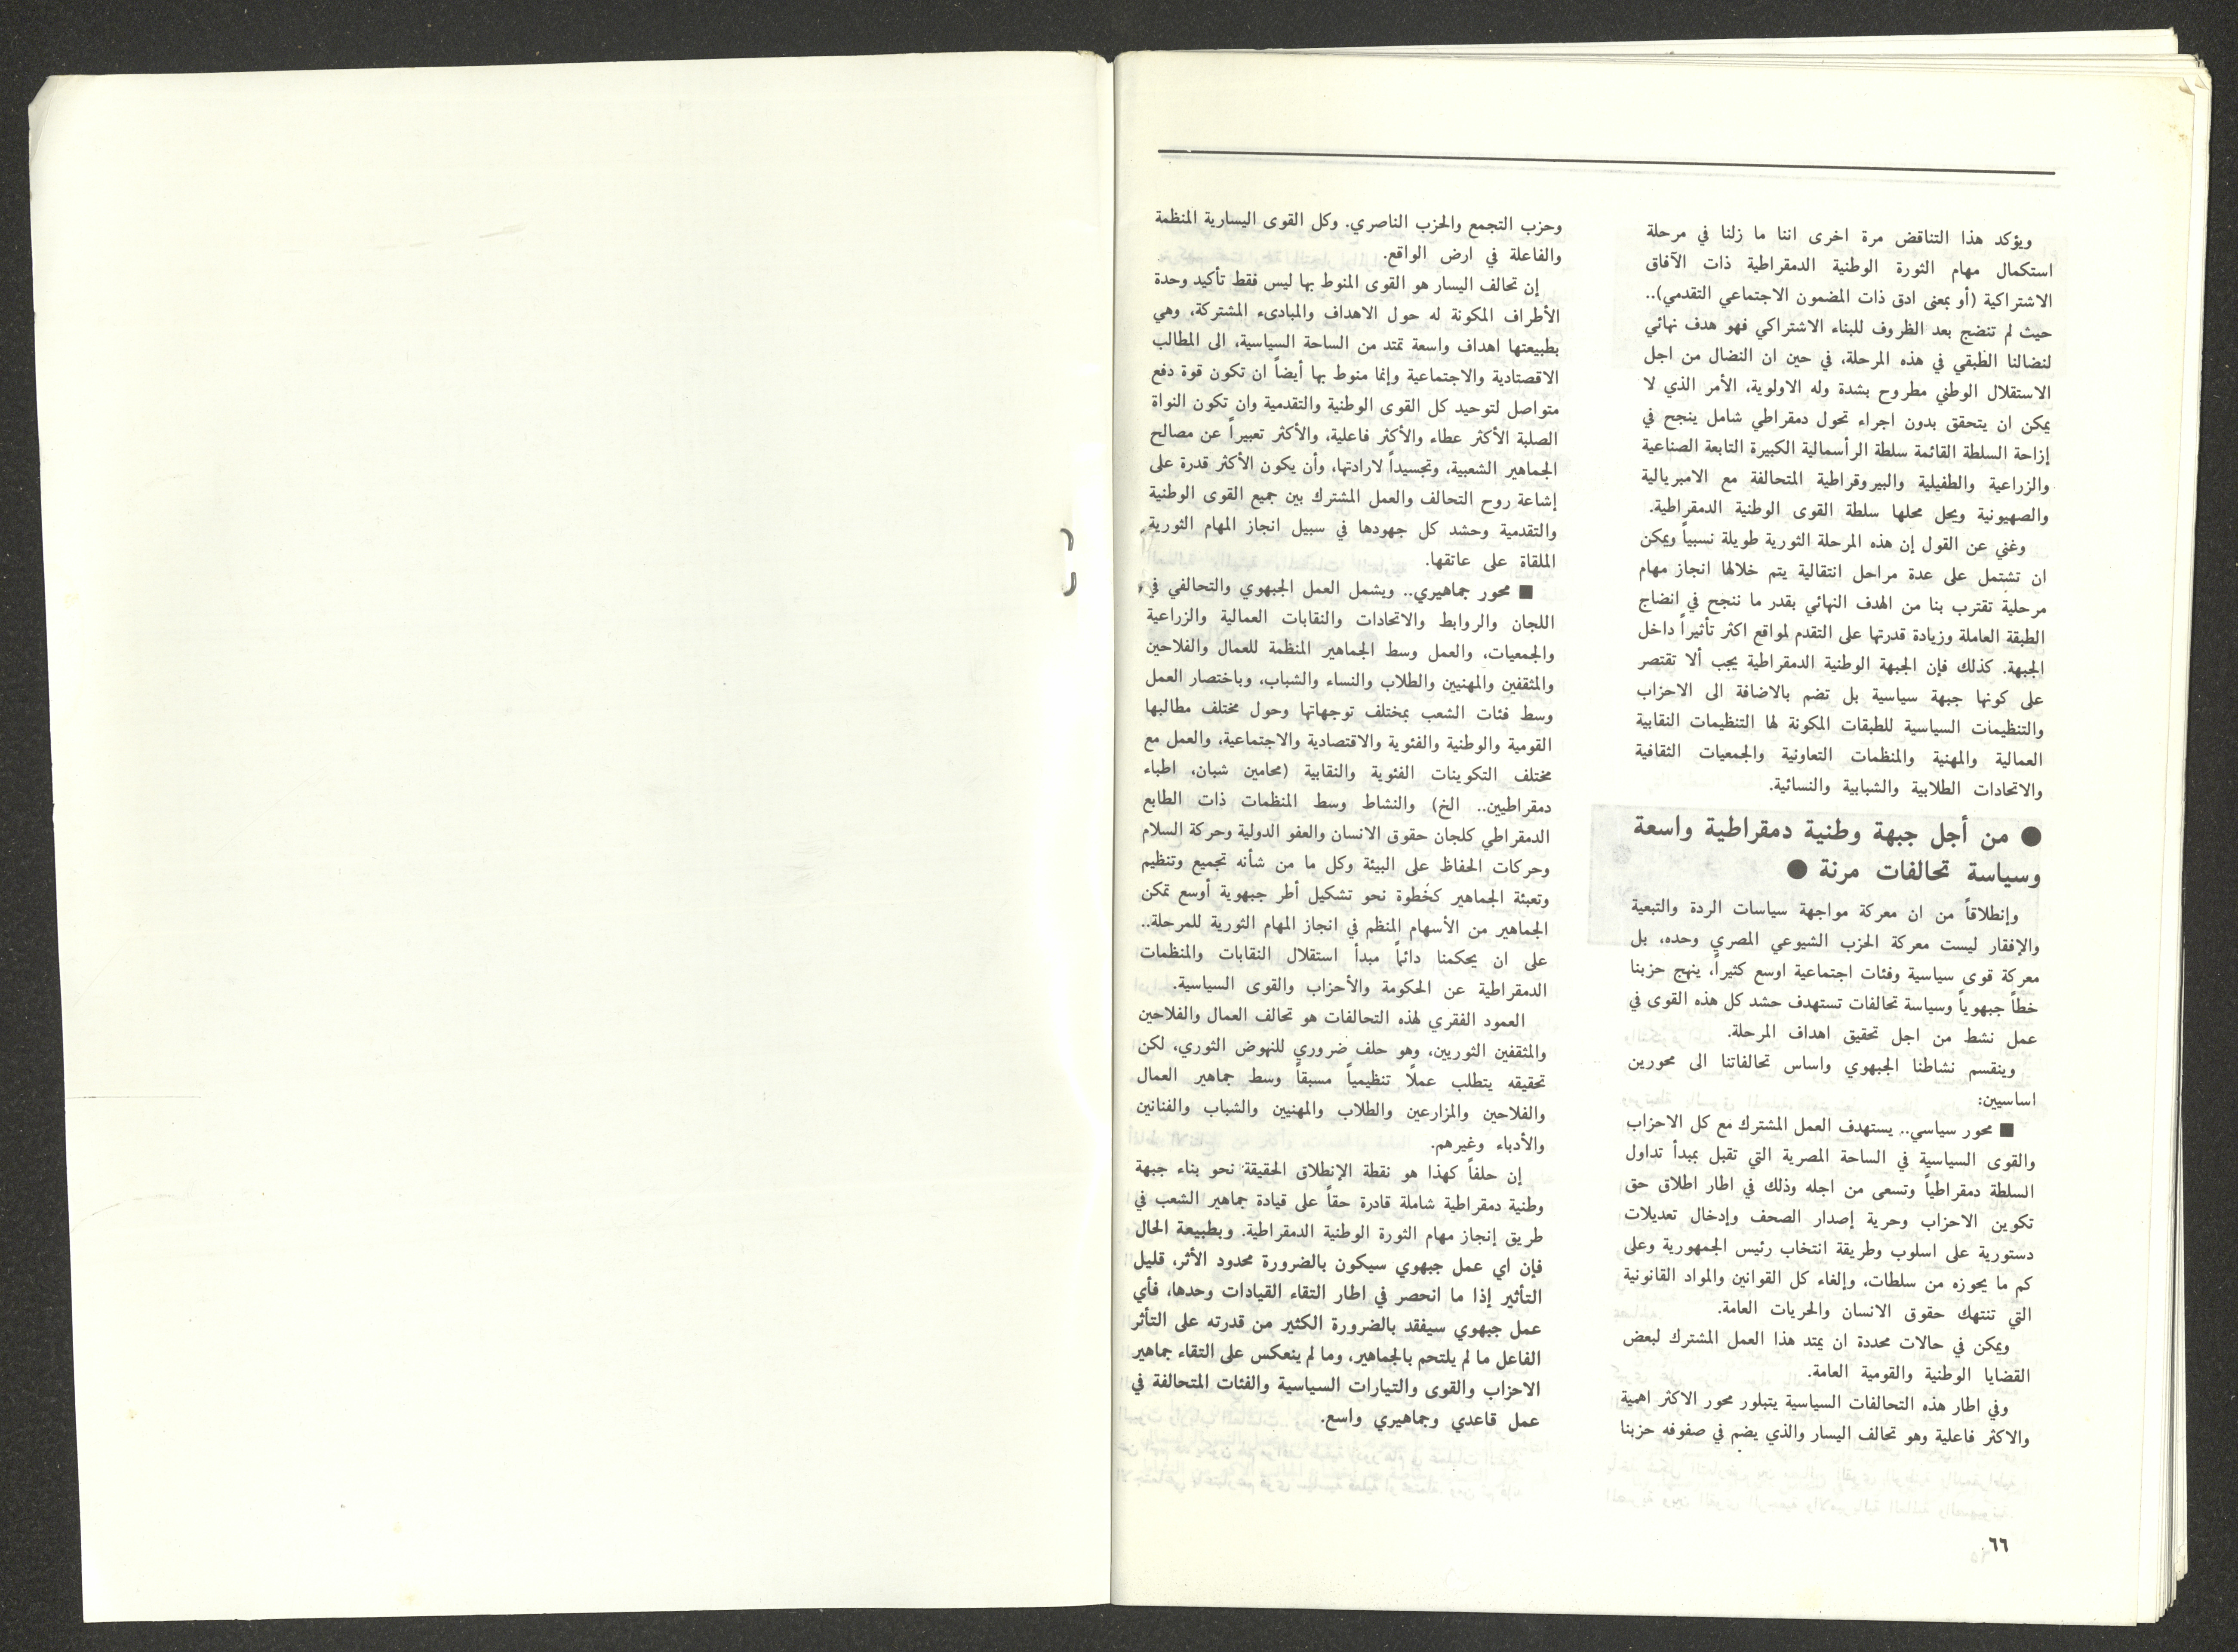 ويؤكد هذا التناقض مرة اخرى اننا ما زلنا في مرحلة
استكمال مهام الثورة الوطنية الدمقراطية ذات الآفاق
الاشتراكية (أو بمعنى ادق ذات المضمون الاجتماعي التقدمي)..
حيث لم تنضج بعد الظروف للبناء الاشتراكي فهو هدف نهائي
لنضالنا الطبقي في هذه المرحلة، في حين ان النضال من اجل
الاستقلال الوطني مطروح بشدة وله الاولوية، الأمر الذي لا
يمكن ان يتحقق بدون اجراء تحول دمقراطي شامل ينجح في
إزاحة السلطة القائمة سلطة الرأسمالية الكبيرة التابعة الصناعية
والزراعية والطفيلية والبيروقراطية المتحالفة مع الامبريالية
والصهيونية ويحل محلها سلطة القوى الوطنية الدمقراطية.
وغني عن القول إن هذه المرحلة الثورية طويلة نسبياً ويمكن
ان تشتمل على عدة مراحل انتقالية يتم خلالها انجاز مهام
مرحلية تقترب بنا من الهدف النهائي بقدر ما ننجح في انضاج
الطبقة العاملة وزيادة قدرتها على التقدم لمواقع اكثر تأثيراً داخل
الجبهة. كذلك فإن الجبهة الوطنية الدمقراطية يجب ألا تقتصر
على كونها جبهة سياسية بل تضم بالاضافة الى الاحزاب
والتنظيمات السياسية للطبقات المكونة لها التنظيمات النقابية
العمالية والمهنية والمنظمات التعاونية والجمعيات الثقافية
والاتحادات الطلابية والشبابية والنسائية.
● من أجل جبهة وطنية دمقراطية واسعة
وسياسة تحالفات مرنة ●
وإنطلاقاً من ان معركة مواجهة سياسات الردة والتبعية
والإفقار ليست معركة الحزب الشيوعي المصري وحده، بل
معركة قوى سياسية وفئات اجتماعية اوسع كثيراً، ينهج حزبنا
خطاً جبهوياً وسياسة تحالفات تستهدف حشد كل هذه القوى في
عمل نشط من اجل تحقيق اهداف المرحلة.
وينقسم نشاطنا الجبهوي واساس تحالفاتنا الى محورين
اساسيين:
■ محور سياسي.. يستهدف العمل المشترك مع كل الاحزاب
والقوى السياسية في الساحة المصرية التي تقبل بمبدأ تداول
السلطة دمقراطياً وتسعى من اجله وذلك في اطار اطلاق حق
تكوين الاحزاب وحرية إصدار الصحف وإدخال تعديلات
دستورية على اسلوب وطريقة انتخاب رئيس الجمهورية وعلى
كم ما يحوزه من سلطات، وإلغاء كل القوانين والمواد القانونية
التي تنتهك حقوق الانسان والحريات العامة.
ويمكن في حالات محددة ان يمتد هذا العمل المشترك لبعض
القضايا الوطنية والقومية العامة.
وفي اطار هذه التحالفات السياسية يتبلور محور الاكثر اهمية
والاكثر فاعلية وهو تحالف اليسار والذي يضم في صفوفه حزبنا
وحزب التجمع والحزب الناصري. وكل القوى اليسارية المنظمة
والفاعلة في ارض الواقع.
إن تحالف اليسار هو القوى المنوط بها ليس فقط تأكيد وحدة
الأطراف المكونة له حول الاهداف والمبادىء المشتركة، وهي
بطبيعتها اهداف واسعة تمتد من الساحة السياسية، الى المطالب
الاقصتادية والاجتماعية وإنما منوط بها أيضاً ان تكون قوة دفع
متواصل لتوحيد كل القوى الوطنية والتقدمية وان تكون النواة
الصلبة الأكثر عطاء والأكثر فاعلية، والأكثر تعبيراً عن مصالح
الجماهير الشعبية، وتجسيداً لارادتها، وأن يكون الأكثر قدرة على
إشاعة روح التحالف والعمل المشترك بين جميع القوى الوطنية
والتقدمية وحشد كل جهودها في سبيل انجاز المهام الثورية
الملقاة على عاتقها.
■ محور جماهيري.. ويشمل العمل الجبهوي والتحالفي في
اللجان والروابط والاتحادات والنقابات العمالية والزراعية
والجمعيات، والعمل وسط الجماهير المنظمة للعمال والفلاحين
والمثقفين والمهنيين والطلاب والنساء والشباب، وباختصار العمل
وسط فئات الشعب بمختلف توجهاتها وحول مختلف مطالبها
القومية والوطنية والفئوية والاقتصادية والاجتماعية، والعمل مع
مختلف التكوينات الفئوية والنقابية (محامين شبان، اطباء
دمقراطيين.. الخ) والنشاط وسط المنظمات ذات الطابع
الدمقراطي كلجان حقوق الانسان والعفو الدولية وحركة السلام
وحركات الحفاظ على البيئة وكل ما من شأنه تجميع وتنظيم
وتعبئة الجماهير كخُطوة نحو تشكيل أطر جبهوية أوسع تمكن
الجماهير من الأسهام المنظم في انجاز المهام الثورية للمرحلة..
على ان يحكمنا دائماً مبدأ استقلال النقابات والمنظمات
الدمقراطية عن الحكومة والأحزاب والقوى السياسية.
العمود الفقري لهذه التحالفات هو تحالف العمال والفلاحين
والمثقفين الثوريين، وهو حلف ضروري للنهوض الثوري، لكن
تحقيقه يتطلب عملًا تنظيمياً مسبقاً وسط جماهير العمال
والفلاحين والمزارعين والطلاب والمهنيين والشباب والفنانين
والأدباء وغيرهم.
إن حلفاً كهذا هو نقطة الإنطلاق الحقيقة نحو بناء جبهة
وطنية دمقراطية شاملة قادرة حقاً على قيادة جماهير الشعب في
طريق إنجاز مهام الثورة الوطنية الدمقراطية. وبطبيعة الحال
فإن اي عمل جبهوي سيكون بالضرورة محدود الأثر، قليل
التأثير إذا ما انحصر في اطار التقاء القيادات وحدها، فأي
عمل جبهوي سيفقد بالضرورة الكثير من قدرته على التأثر
الفاعل ما لم يلتحم بالجماهير، وما لم ينعكس على التقاء جماهير
الاحزاب والقوى والتيارات السياسية والفئات المتحالفة في
عمل قاعدي وجماهيري واسع.
٦٦